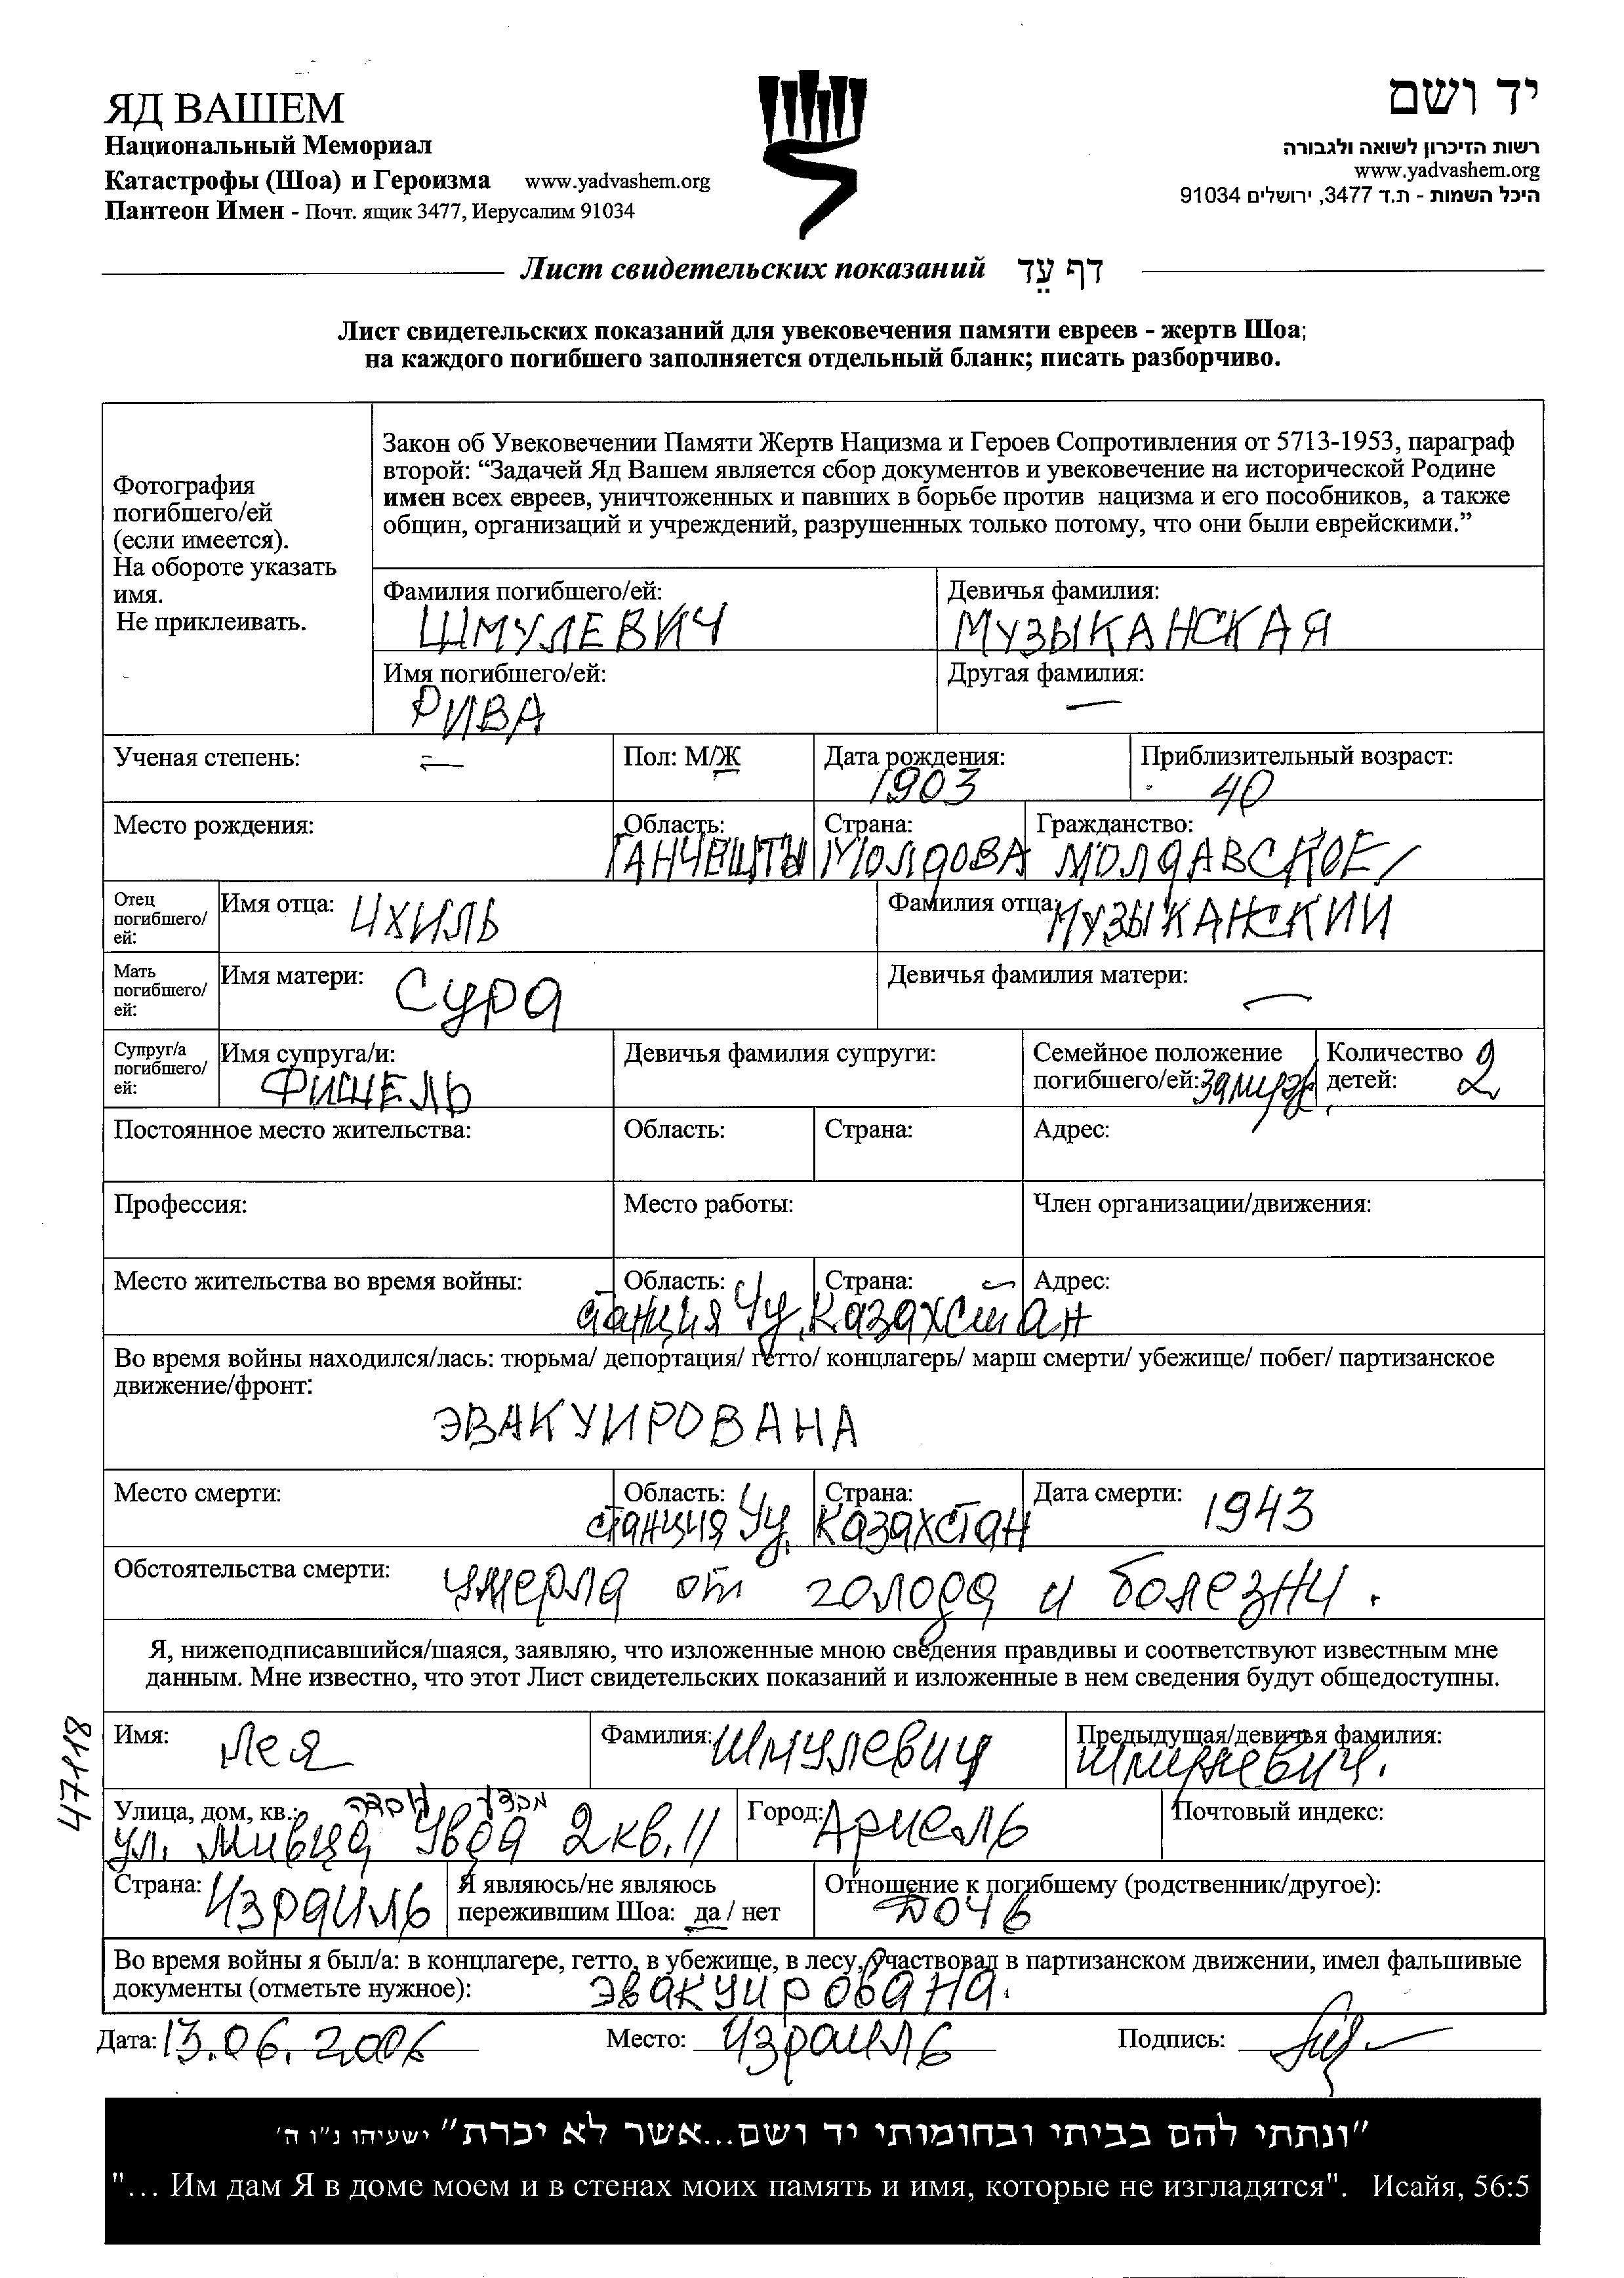 ЯД ВАШЕМ
Национальный Мемориал
Катастрофы (Шоа) и Героизма www.yadvashem.org
Пантеон Имен - Почт. ящик 3477, Иерусалим 91034
יד ושם
רשות הזיכרון לשואה ולגבורה
www.yadvashem.org
היכל השמות - ת.ד 3477, ירושלים 91034
Лист свидетельских показаний דף עֵד
Лист свидетельских показаний для увековечения памяти евреев - жертв Шоа;
на каждого погибшего заполняется отдельный бланк; писать разборчиво.
Фотография
погибшего/ей
(если имеется).
На обороте указать
имя.
Не приклеивать.
Закон об Увековечении Памяти Жертв Нацизма и Героев Сопротивления от 5713-1953, параграф
второй: “Задачей Яд Вашем является сбор документов и увековечение на исторической Родине
имен всех евреев, уничтоженных и павших в борьбе против нацизма и его пособников, а также
общин, организаций и учреждений, разрушенных только потому, что они были еврейскими.”
Фамилия погибшего/ей: Девичья фамилия:
ШМУЛЕВИЧ МУЗЫКАНСКАЯ
Имя погибшего/ей: Другая фамилия:
РИВА —
Ученая степень: — Пол: М/Ж Дата рождения: Приблизительный возраст:
1903 40
Место рождения: Область: Страна: Гражданство:
ГАНЧЕШТЫ МОЛДОВА МОЛДАВСКОЕ
Отец
погибшего/
ей:
Имя отца: ИХИЛЬ Фамилия отца: МУЗЫКАНСКИЙ
Мать
погибшего/
ей:
Имя матери: Сура Девичья фамилия матери: —
Супруг/а
погибшего/
ей:
Имя супруга/и: Девичья фамилия супруги: Семейное положение Количество
ФИШЕЛЬ погибшего/ей: замуж. детей: 2
Постоянное место жительства: Область: Страна: Адрес:
Профессия: Место работы: Член организации/движения:
Место жительства во время войны: Область: Страна: Адрес:
станция Чу, Казахстан
Во время войны находился/лась: тюрьма/ депортация/ гетто/ концлагерь/ марш смерти/ убежище/ побег/ партизанское
движение/фронт:
ЭВАКУИРОВАНА
Место смерти: Область: Страна: Дата смерти: 1943
станция Чу, Казахстан
Обстоятельства смерти: умерла от голода и болезни.
Я, нижеподписавшийся/шаяся, заявляю, что изложенные мною сведения правдивы и соответствуют известным мне
данным. Мне известно, что этот Лист свидетельских показаний и изложенные в нем сведения будут общедоступны.
47118
Имя: Лея Фамилия: Шмулевич Предыдущая/девичья фамилия:
Шмулевич.
Улица, дом, кв.: Город: Ариель Почтовый индекс:
ул. Мивца Увда 2 кв. 11
Страна: Израиль Я являюсь/не являюсь Отношение к погибшему (родственник/другое):
пережившим Шоа: да / нет ДОЧЬ
Во время войны я был/а: в концлагере, гетто, в убежище, в лесу, участвовал в партизанском движении, имел фальшивые
документы (отметьте нужное): эвакуирована.
Дата: 13.06.2006 Место: Израиль Подпись:
"ונתתי להם בביתי ובחומותי יד ושם...אשר לא יכרת" ישעיהו נ"ו ה'
"... Им дам Я в доме моем и в стенах моих память и имя, которые не изгладятся". Исайя, 56:5